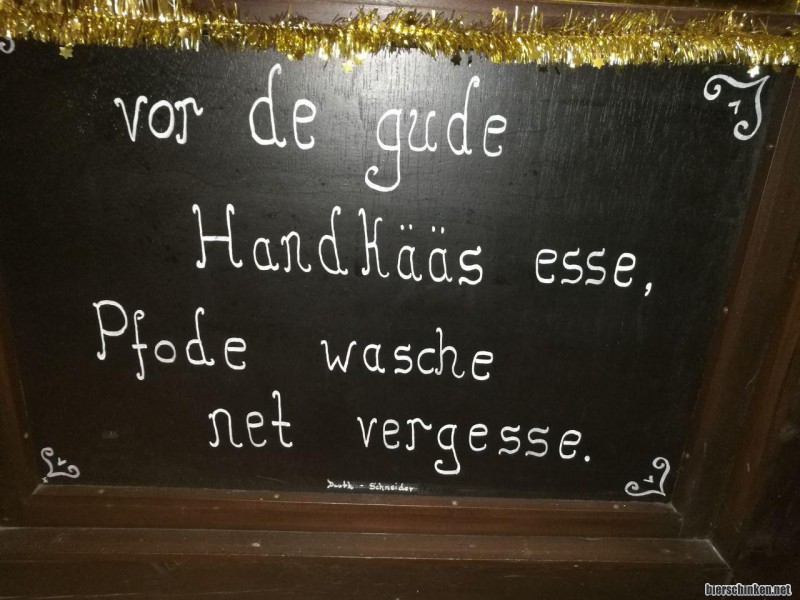 vor de gude
Handkääs esse,
Pfode wasche
net vergesse.
Schneider
bierschinken.net